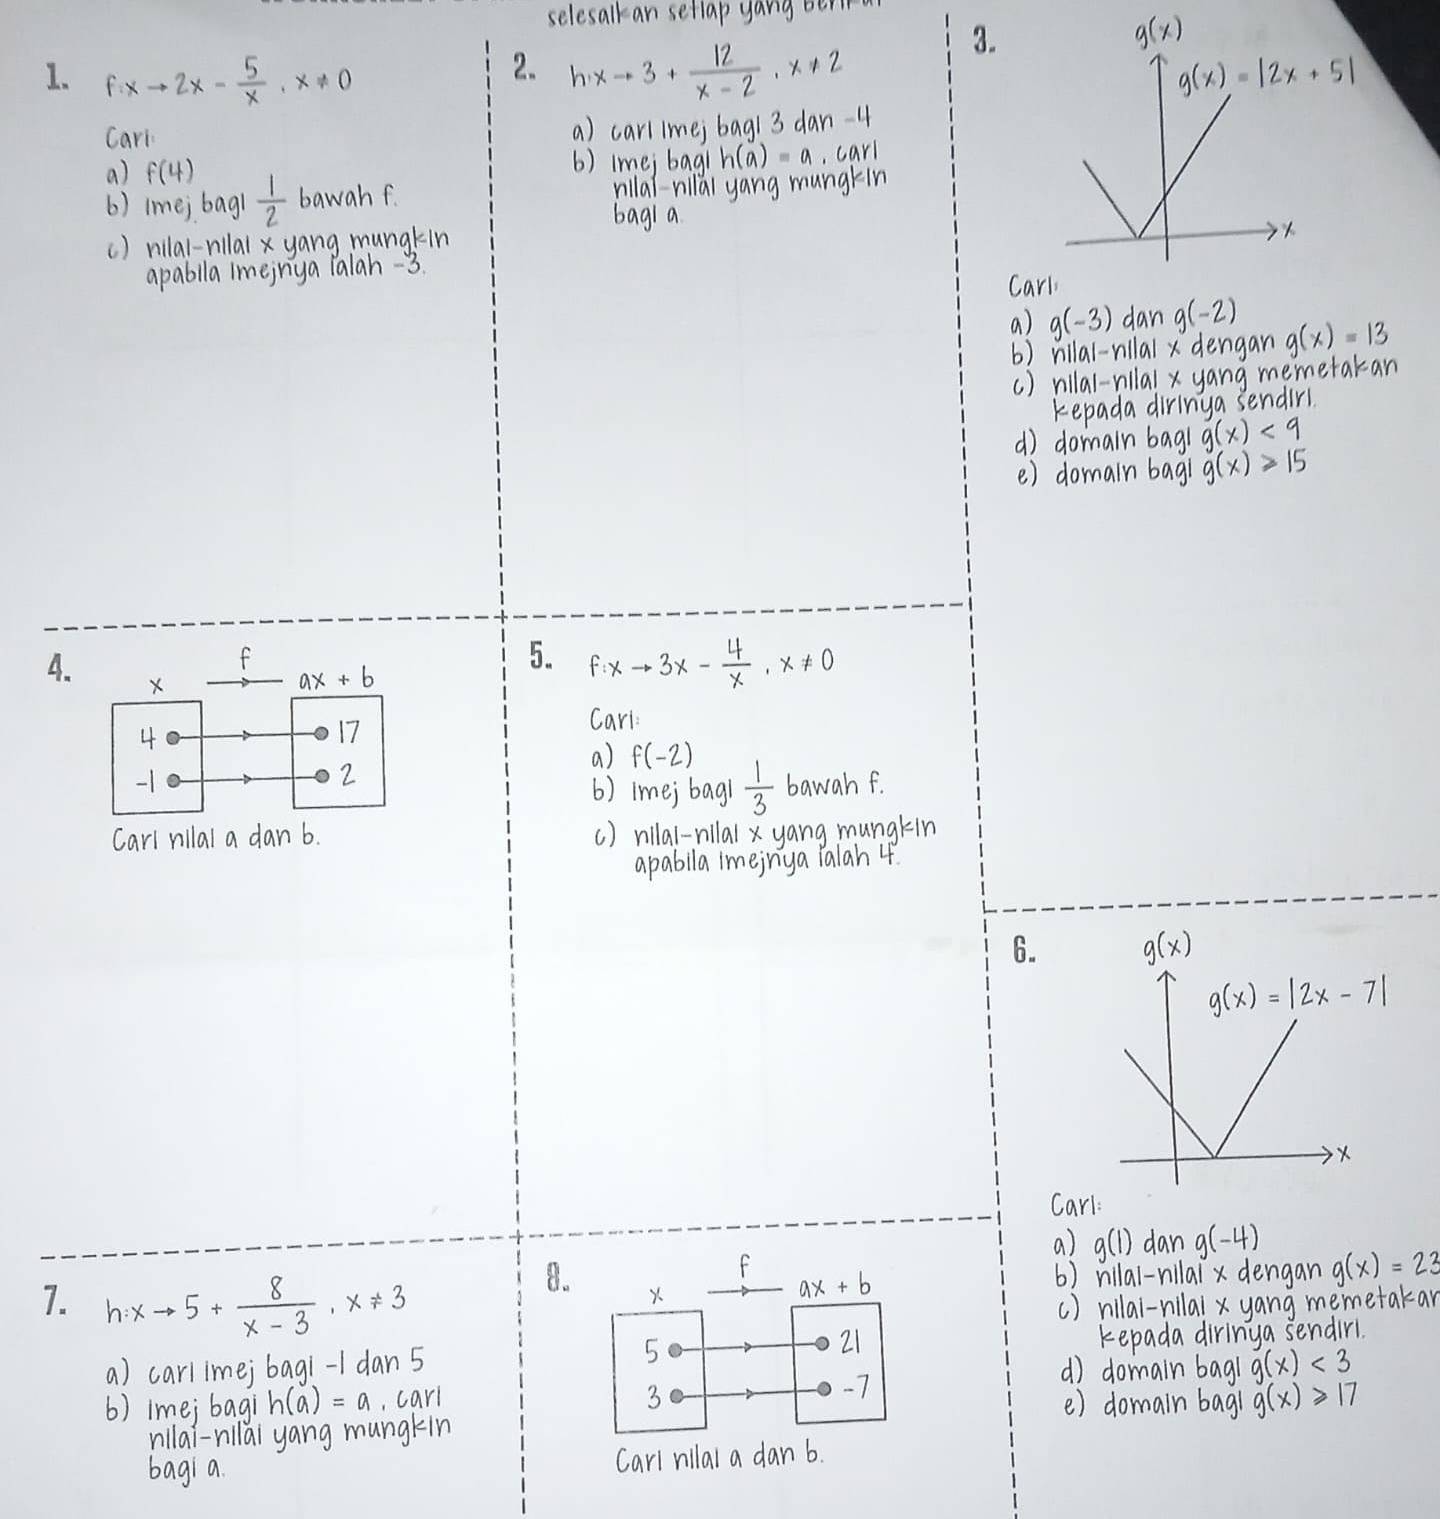 selesaikan setiap yang
1. f:x → 2x - 5/x , x ≠ 0
Cari:
a) f(4)
b) imej bagi 1/2 bawah f.
c) nilai-nilai x yang mungkin
apabila imejnya ialah -3.
2. h:x → 3 + 12/(x - 2) , x ≠ 2
a) cari imej bagi 3 dan -4
b) imej bagi h(a) = a , cari
nilai-nilai yang mungkin
bagi a.
3. g(x)
g(x) = |2x + 5|
x
Cari:
a) g(-3) dan g(-2)
b) nilai-nilai x dengan g(x) = 13
c) nilai-nilai x yang memetakan
kepada dirinya sendiri.
d) domain bagi g(x) < 9
e) domain bagi g(x) ⩾ 15
4. f
x → ax + b
4 → 17
-1 → 2
Cari nilai a dan b.
5. f:x → 3x - 4/x , x ≠ 0
Cari:
a) f(-2)
b) imej bagi 1/3 bawah f.
c) nilai-nilai x yang mungkin
apabila imejnya ialah 4.
6. g(x)
g(x) = |2x - 7|
x
Cari:
a) g(1) dan g(-4)
b) nilai-nilai x dengan g(x) = 23
c) nilai-nilai x yang memetakan
kepada dirinya sendiri.
d) domain bagi g(x) < 3
e) domain bagi g(x) ⩾ 17
7. h:x → 5 + 8/(x - 3) , x ≠ 3
a) cari imej bagi -1 dan 5
b) imej bagi h(a) = a , cari
nilai-nilai yang mungkin
bagi a.
8. f
x → ax + b
5 → 21
3 → -7
Cari nilai a dan b.